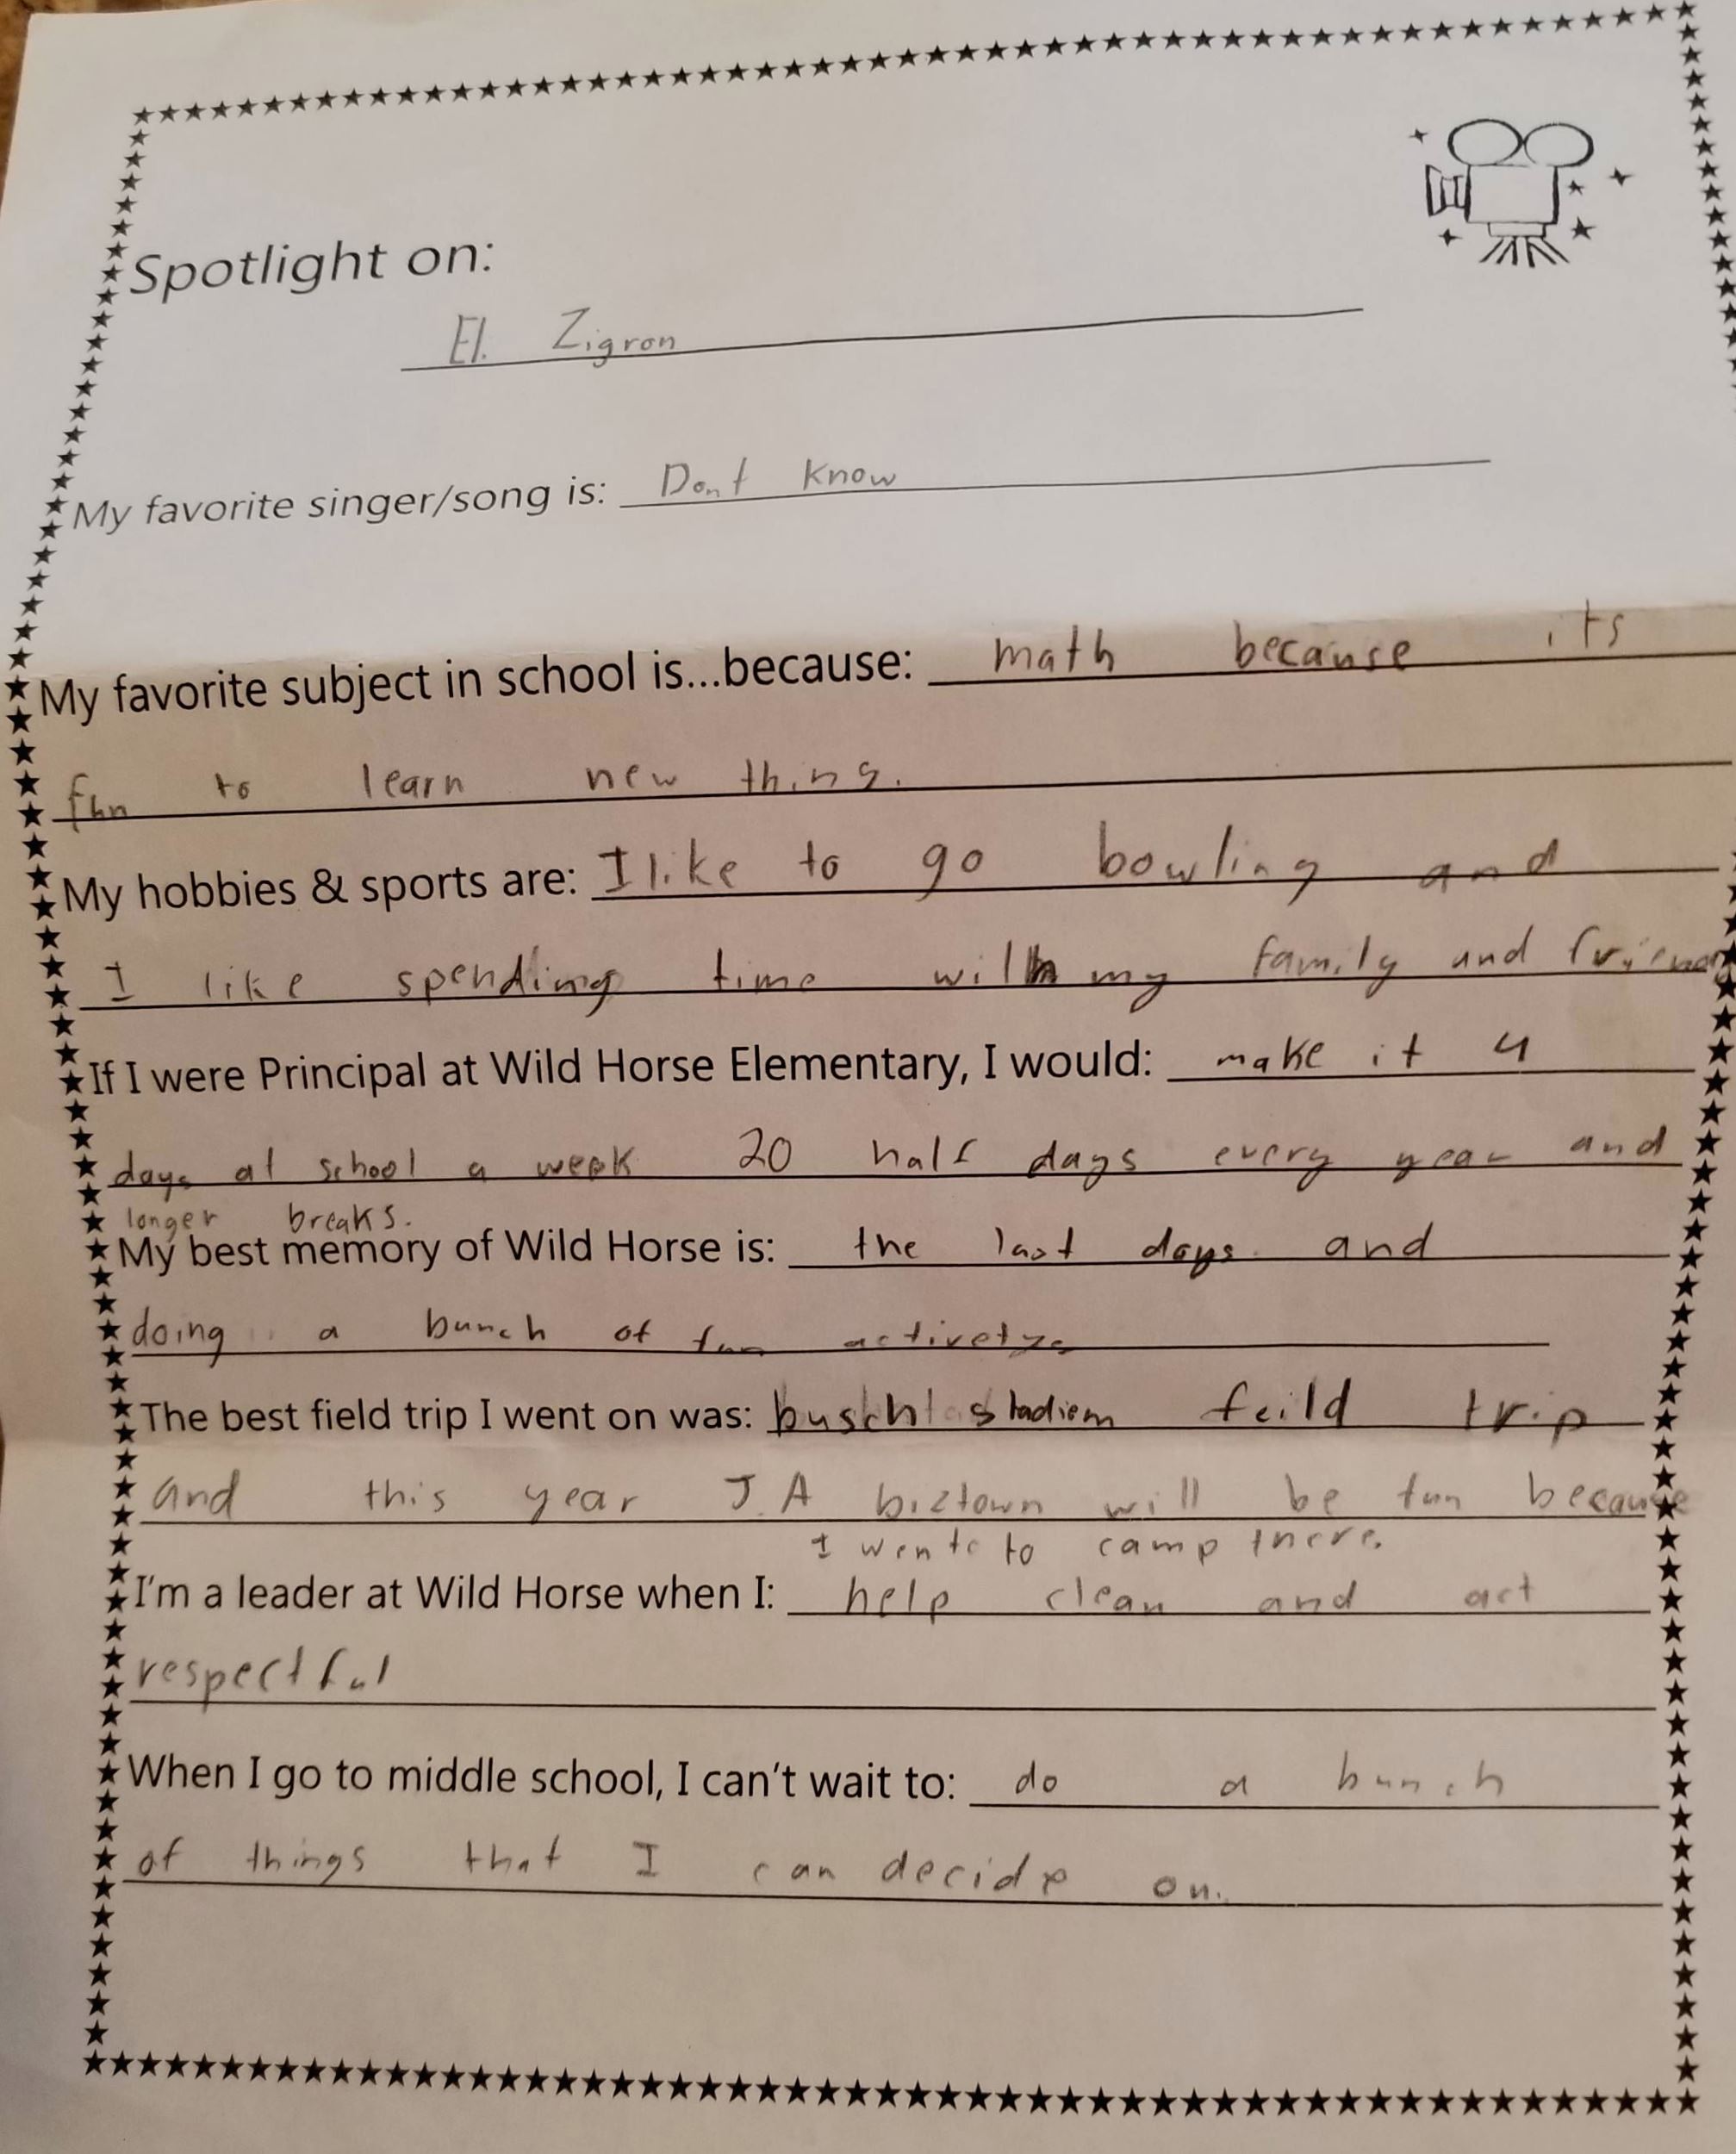 Spotlight on:
El. Zigron
My favorite singer/song is: Dont know
My favorite subject in school is...because: math because its
fun to learn new thing.
My hobbies & sports are: I like to go bowling and
I like spending time with my family and friends
If I were Principal at Wild Horse Elementary, I would: make it 4
days at school a week 20 half days every year and
longer breaks.
My best memory of Wild Horse is: the last days and
doing a bunch of fun activetys
The best field trip I went on was: busch stadiem feild trip
and this year J.A biztown will be fun because
I wente to camp there.
I'm a leader at Wild Horse when I: help clean and act
respectful
When I go to middle school, I can't wait to: do a bunch
of things that I can decide on.